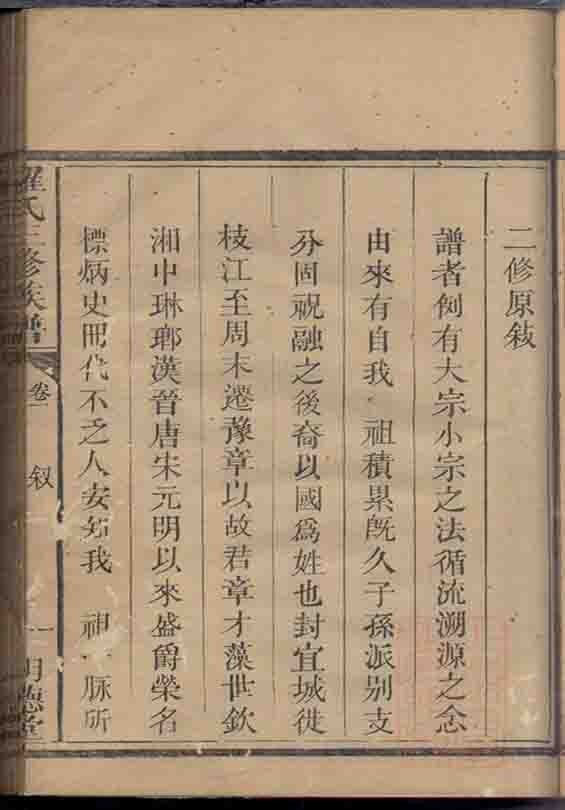 二修原敍
譜者例有大宗小宗之法循流溯源之念
由來有自我 祖積累旣久子孫派别支
分固祝融之後裔以國爲姓也封宜城徙
枝江至周末遷豫章以故君章才藻世欽
湘中琳瑯漢晉唐宋元明以來盛爵榮名
標炳史冊代不乏人安知我 祖 脉所
羅氏三修族譜 卷一 敘 一 明德堂